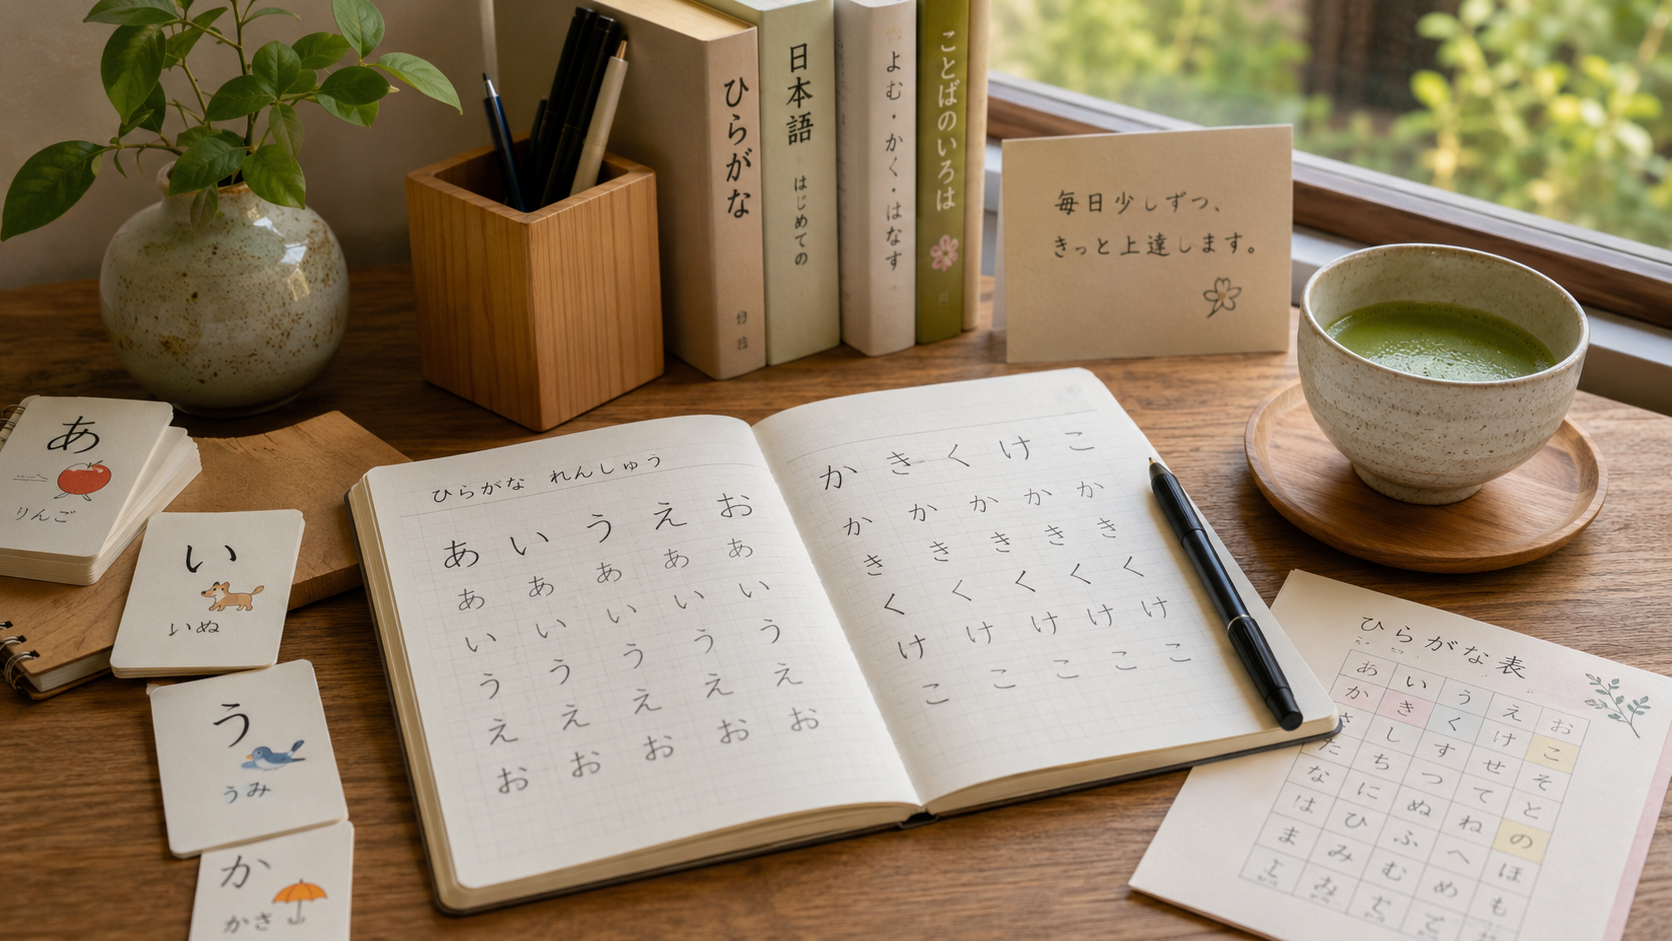 ひらがな
日本語 はじめての
よむ・かく・はなす
ことばのいろは
毎日少しずつ、
きっと上達します。
あ
りんご
い
いぬ
う
うみ
か
かさ
ひらがな れんしゅう
あ い う え お
あ あ あ あ あ
い い い い い
う う う う う
え え え え え
お お お お お
か き く け こ
か か か か か
き き き き き
く く く く く
け け け け け
こ こ こ こ こ
ひらがな表
あ い う え お
か き く け こ
さ し す せ そ
た ち つ て と
な に ぬ ね の
は ひ ふ へ ほ
ま み む め も